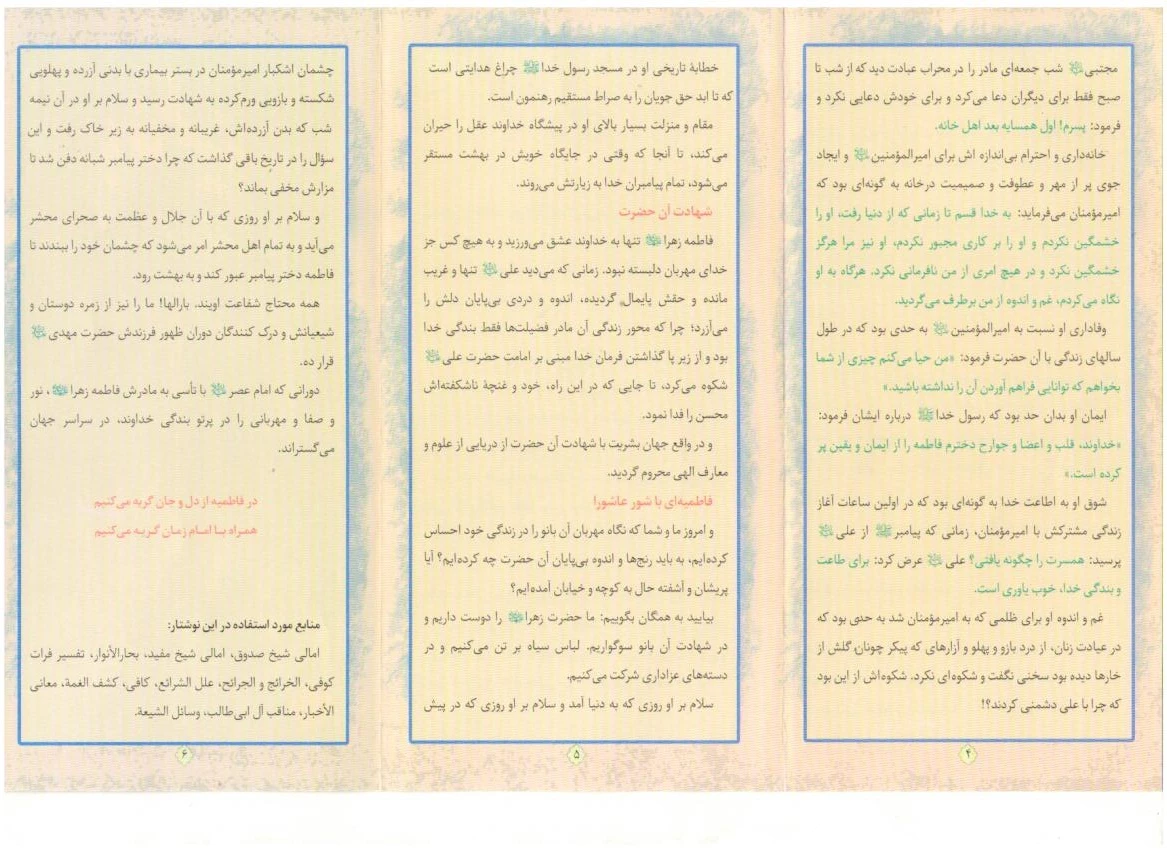 مجتبی علیه‌السلام شب جمعه‌ای مادر را در محراب عبادت دید که از شب تا
صبح فقط برای دیگران دعا می‌کرد و برای خودش دعایی نکرد و
فرمود: پسرم! اول همسایه بعد اهل خانه.
خانه‌داری و احترام بی‌اندازه اش برای امیرالمؤمنین و ایجاد
جوی پر از مهر و عطوفت و صمیمیت درخانه به گونه‌ای بود که
امیرمؤمنان می‌فرماید: به خدا قسم تا زمانی که از دنیا رفت، او را
خشمگین نکردم و او را بر کاری مجبور نکردم، او نیز مرا هرگز
خشمگین نکرد و در هیچ امری از من نافرمانی نکرد. هرگاه به او
نگاه می‌کردم، غم و اندوه از من برطرف می‌گردید.
وفاداری او نسبت به امیرالمؤمنین به حدی بود که در طول
سالهای زندگی با آن حضرت فرمود: «من حیا می‌کنم چیزی از شما
بخواهم که توانایی فراهم آوردن آن را نداشته باشید.»
ایمان او بدان حد بود که رسول خدا درباره ایشان فرمود:
«خداوند، قلب و اعضا و جوارح دخترم فاطمه را از ایمان و یقین پر
کرده است.»
شوق او به اطاعت خدا به گونه‌ای بود که در اولین ساعات آغاز
زندگی مشترکش با امیرمؤمنان، زمانی که پیامبر ﷺ از علی
پرسید: همسرت را چگونه یافتی؟ علی عرض کرد: برای طاعت
و بندگی خدا، خوب یاوری است.
غم و اندوه او برای ظلمی که به امیرمؤمنان شد به حدی بود که
در عیادت زنان، از درد بازو و پهلو و آزارهای که پیکر چونان گلش از
خارها دیده بود سخنی نگفت و شکوه‌ای نکرد. شکوه‌اش از این بود
که چرا با علی دشمنی کردند؟!
۴
خطابهٔ تاریخی او در مسجد رسول خدا ﷺ چراغ هدایتی است
که تا ابد حق جویان را به صراط مستقیم رهنمون است.
مقام و منزلت بسیار بالای او در پیشگاه خداوند عقل را حیران
می‌کند، تا آنجا که وقتی در جایگاه خویش در بهشت مستقر
می‌شود، تمام پیامبران خدا به زیارتش می‌روند.
شهادت آن حضرت
فاطمه زهرا تنها به خداوند عشق می‌ورزید و به هیچ کس جز
خدای مهربان دلبسته نبود. زمانی که می‌دید علی تنها و غریب
مانده و حقش پایمال گردیده، اندوه و دردی بی‌پایان دلش را
می‌آزرد؛ چرا که محور زندگی آن مادر فضیلت‌ها فقط بندگی خدا
بود و از زیر پا گذاشتن فرمان خدا مبنی بر امامت حضرت علی
شکوه می‌کرد، تا جایی که در این راه، خود و غنچهٔ ناشکفته‌اش
محسن را فدا نمود.
و در واقع جهان بشریت با شهادت آن حضرت از دریایی از علوم و
معارف الهی محروم گردید.
فاطمیه‌ای با شور عاشورا
و امروز ما و شما که نگاه مهربان آن بانو را در زندگی خود احساس
کرده‌ایم، به یاید رنج‌ها و اندوه بی‌پایان آن حضرت چه کرده‌ایم؟ آیا
پریشان و آشفته حال به کوچه و خیابان آمده‌ایم؟
بیایید به همگان بگوییم: ما حضرت زهرا را دوست داریم و
در شهادت آن بانو سوگواریم. لباس سیاه بر تن می‌کنیم و در
دسته‌های عزاداری شرکت می‌کنیم.
سلام بر او روزی که به دنیا آمد و سلام بر او روزی که در پیش
۵
چشمان اشکبار امیرمؤمنان در بستر بیماری با بدنی آزرده و پهلویی
شکسته و بازویی ورم‌کرده به شهادت رسید و سلام بر او در آن نیمه
شب که بدن آزرده‌اش، غریبانه و مخفیانه به زیر خاک رفت و این
سؤال را در تاریخ باقی گذاشت که چرا دختر پیامبر شبانه دفن شد تا
مزارش مخفی بماند؟
و سلام بر او روزی که با آن جلال و عظمت به صحرای محشر
می‌آید و به تمام اهل محشر امر می‌شود که چشمان خود را ببندند تا
فاطمه دختر پیامبر عبور کند و به بهشت رود.
همه محتاج شفاعت اویند. بارالها! ما را نیز از زمره دوستان و
شیعیانش و درک کنندگان دوران ظهور فرزندش حضرت مهدی
قرار ده.
دورانی که امام عصر با تأسی به مادرش فاطمه زهرا، نور
و صفا و مهربانی را در پرتو بندگی خداوند، در سراسر جهان
می‌گستراند.
در فاطمیه از دل و جان گریه می‌کنیم
همراه با امام زمان گریه می‌کنیم
منابع مورد استفاده در این نوشتار:
امالی شیخ صدوق، امالی شیخ مفید، بحارالأنوار، تفسیر فرات
کوفی، الخرائج و الجرائح، علل الشرائع، کافی، کشف الغمة، معانی
الأخبار، مناقب آل ابی‌طالب، وسائل الشیعة.
۶